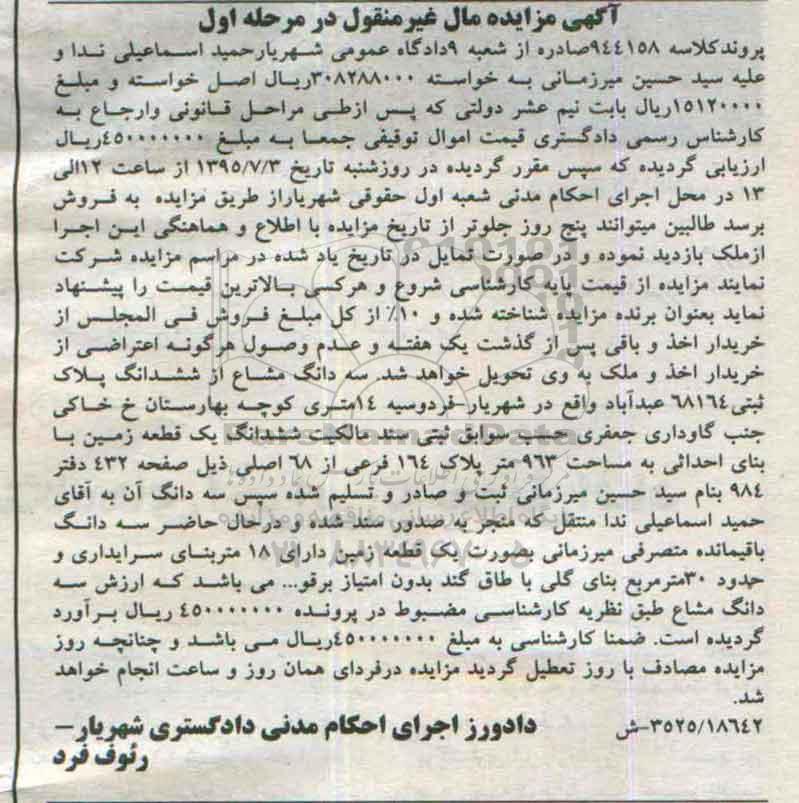 آگهی مزایده مال غیرمنقول در مرحله اول
پروندکلاسه ۹٤٤۱۵۸صادره از شعبه ۹دادگاه عمومی شهریارحمید اسماعیلی ندا و
علیه سید حسین میرزمانی به خواسته ۳۰۸۲۸۸۰۰۰ریال اصل خواسته و مبلغ
۱۵۱۲۰۰۰۰ریال بابت نیم عشر دولتی که پس ازطی مراحل قانونی وارجاع به
کارشناس رسمی دادگستری قیمت اموال توقیفی جمعا به مبلغ ٤۵۰۰۰۰۰۰۰۰ریال
ارزیابی گردیده که سپس مقرر گردیده در روزشنبه تاریخ ۱۳۹۵/۷/۳ از ساعت ۱۲الی
۱۳ در محل اجرای احکام مدنی شعبه اول حقوقی شهریاراز طریق مزایده به فروش
برسد طالبین میتوانند پنج روز جلوتر از تاریخ مزایده با اطلاع و هماهنگی این اجرا
ازملک بازدید نموده و در صورت تمایل در تاریخ یاد شده در مراسم مزایده شرکت
نمایند مزایده از قیمت پایه کارشناسی شروع و هرکسی بالاترین قیمت را پیشنهاد
نماید بعنوان برنده مزایده شناخته شده و ۱۰٪ از کل مبلغ فروش فی المجلس از
خریدار اخذ و باقی پس از گذشت یک هفته و عدم وصول هرگونه اعتراضی از
خریدار اخذ و ملک به وی تحویل خواهد شد. سه دانگ مشاع از ششدانگ پلاک
ثبتی٦۸۱٦٤ عبدآباد واقع در شهریار-فردوسیه ۱٤متری کوچه بهارستان خ خاکی
جنب گاوداری جعفری حسب سوابق ثبتی سند مالکیت ششدانگ یک قطعه زمین با
بنای احداثی به مساحت ۹٦۳ متر پلاک ۱٦٤ فرعی از ٦۸ اصلی ذیل صفحه ٤۳۲ دفتر
۹۸٤ بنام سید حسین میرزمانی ثبت و صادر و تسلیم شده سپس سه دانگ آن به آقای
حمید اسماعیلی ندا منتقل که منجر به صدور سند شده و درحال حاضر سه دانگ
باقیمانده متصرفی میرزمانی بصورت یک قطعه زمین دارای ۱۸ متربنای سرایداری و
حدود ۳۰مترمربع بنای گلی با طاق گند بدون امتیاز برقو... می باشد که ارزش سه
دانگ مشاع طبق نظریه کارشناسی مضبوط در پرونده ٤۵۰۰۰۰۰۰۰۰ ریال برآورد
گردیده است. ضمنا کارشناسی به مبلغ ٤۵۰۰۰۰۰۰۰۰ریال می باشد و چنانچه روز
مزایده مصادف با روز تعطیل گردید مزایده درفردای همان روز و ساعت انجام خواهد
شد.
۳۵۲۵/۱۸٦٤۲-ش
دادورز اجرای احکام مدنی دادگستری شهریار-
رئوف فرد
ParsNamadData